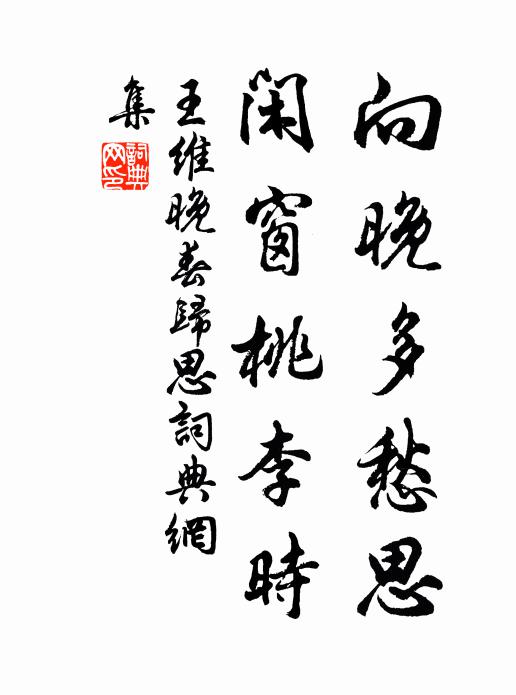 向晚多愁思
閑窗桃李時
王維晚春歸思詞典網
集
詞典網印